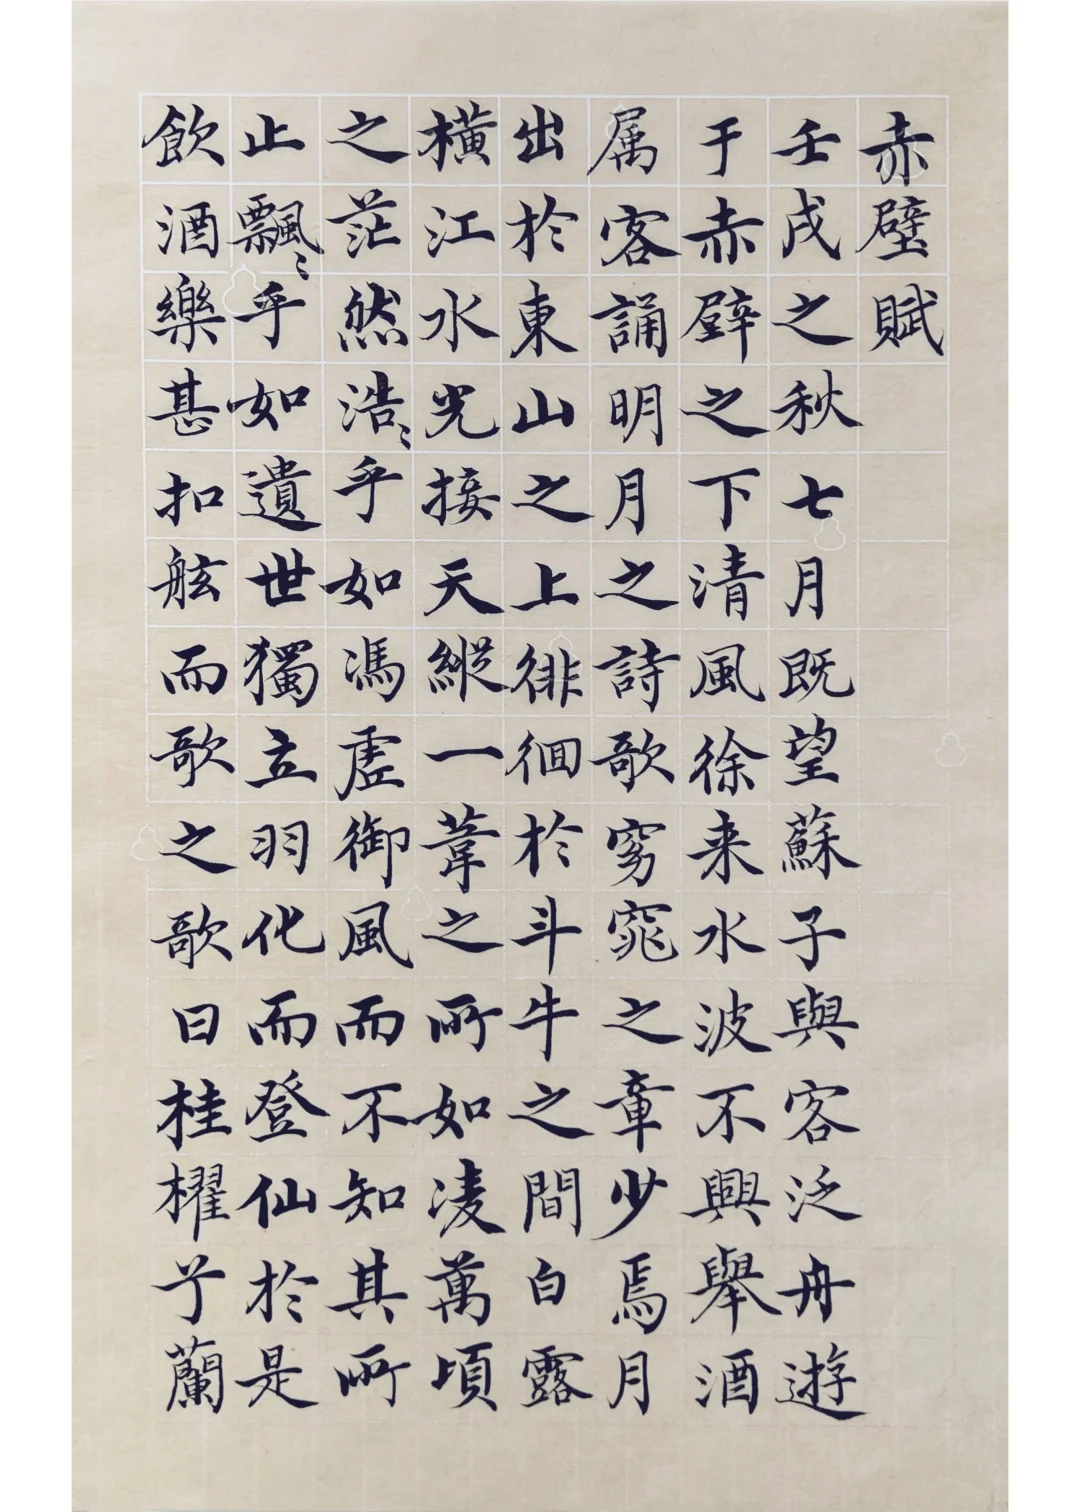 赤壁賦
壬戌之秋七月既望蘇子與客泛舟遊
于赤壁之下清風徐来水波不興舉酒
属客誦明月之詩歌窈窕之章少焉月
出於東山之上徘徊於斗牛之間白露
橫江水光接天縱一葦之所如凌萬頃
之茫然浩〻乎如馮虛御風而不知其所
止飄〻乎如遺世獨立羽化而登仙於是
飲酒樂甚扣舷而歌之歌曰桂櫂兮蘭